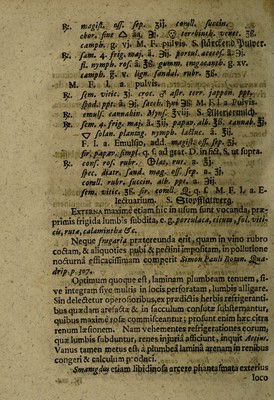 ℞. magist. oss. sep. ʒij. corall. succin.
campb. g. vj. M. F. pulvis. S. Pulver.
℞. sem. 4. frig. maj. ā ʒij. portul. acetos. ā ʒj.
fl. nymph. ros. ā ʒß. gumm. tragacanth. g. xv.
camph. g. v. lign. sandal. rubr. ʒß.
M. F. l. a. pulvis.
℞. sem. vitic. ʒj. croc. ♂ astr. terr. jappon. ppt.
M. F. l. a. Pulvis.
℞. emuls. cannabin. ℥viij. S.
℞. sem. 4. frig. maj. ā ʒij. papav. alb. ʒß. cannab. ʒj.
solan. plantag. nymph. lactuc. ā ℥ij.
F. l. a. Emulsio, add. magist. oss. sep. ʒj.
sir. papav. simpl. q. s. ad grat. D. in fict. S. ut supra.
℞. cons. ros. rubr. rut. a. ℥j.
spec. diatr. sandal. mag. oss. sep. a. ʒj.
corall. rubr. succin. alb. ppt. a. ʒij.
sem. vitic. ʒß. sir. corall. q. s. M. F. l. a. E-
lectuarium. S.
Externa maximè etiam huc in usum sunt vocanda, præ-
primis frigida lumbis subdita, e. g. portulaca, cicuta, sol. viti-
cis, ruta, calamintha &c.
Neque fungaria prætereunda erit, quum in vino rubro
coctam, & aliquoties pubi & pectini impositam, in pollutione
nocturna efficacissimam comperit Simon Pauli Botan. Qua-
drip. p. 307.
Optimum quoque est, laminam plumbeam tenuem, si-
ve integram sive multis in locis perforatam, lumbis alligare.
Sin delectetur operosioribus, ex prædictis herbis refrigeranti-
bus quædam arefacta & in sacculum consuta substernantur,
quibus maximè rosæ commisceantur; prosunt enim hæc citra
renum læsionem. Nam vehementes refrigerationes eorum,
quæ lumbis subduntur, renes injuriâ afficiunt, inquit Aetius.
Vanus tamen metus est, à plumbeâ laminâ arenam in renibus
congeri & calculum produci.
Smaragdus etiam libidinosa arcere phantasmata exterius
loco